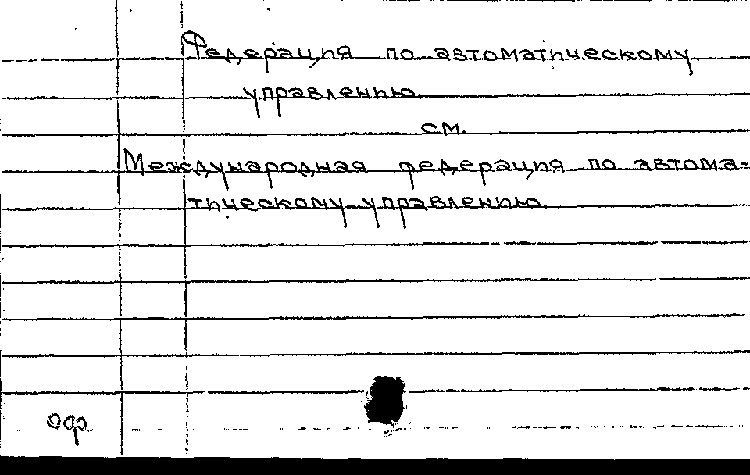 Федерация по автоматическому
управлению
см.
Международная федерация по автома-
тическому управлению
оф